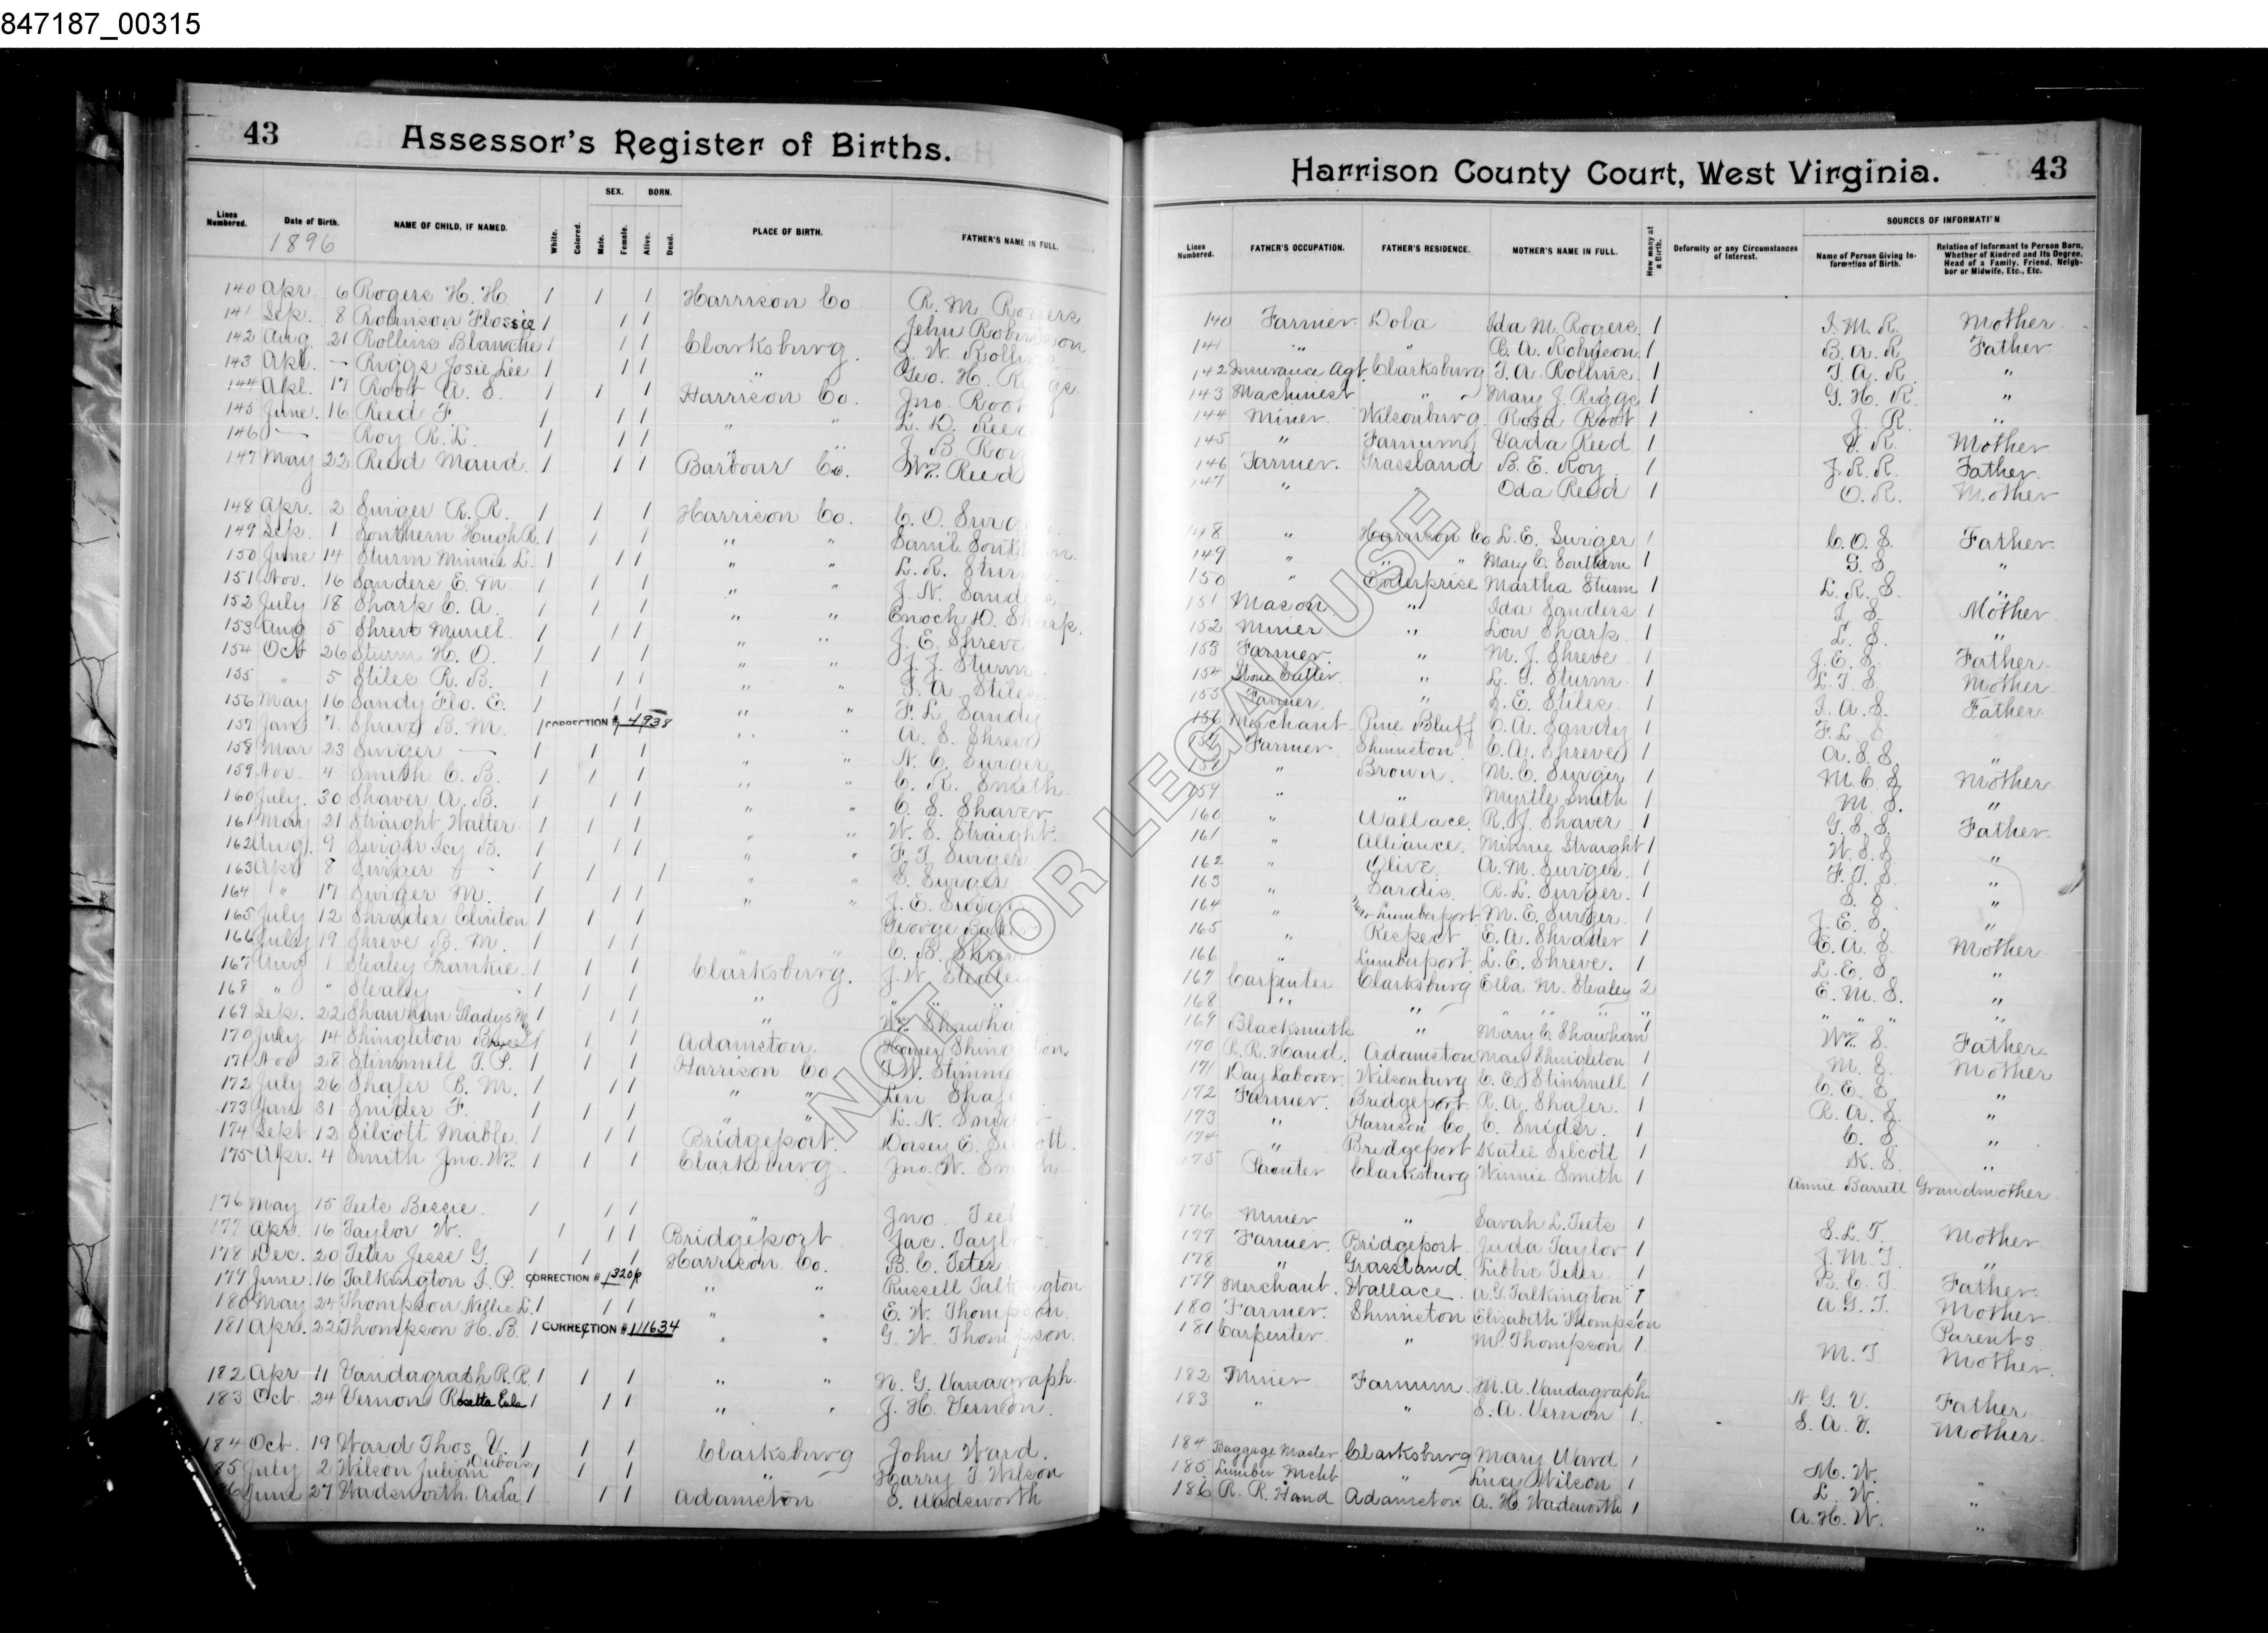 847187_00315
43 Assessor's Register of Births.
Lines Numbered. Date of Birth. NAME OF CHILD, IF NAMED. White. Colored. SEX. Male. Female. BORN. Alive. Dead. PLACE OF BIRTH. FATHER'S NAME IN FULL.
1896
140 Apr. 6 Rogers H. H. 1 1 1 Harrison Co R. M. Rogers
141 Sep. 8 Robinson Flossie 1 1 1 John Robinson
142 Aug. 21 Rollins Blanche 1 1 1 Clarksburg. W. Rollins
143 Apl. — Riggs Josie Lee 1 1 1 " Geo. H. Riggs
144 Apl. 17 Root A. S. 1 1 1 Harrison Co. Jno. Root
145 June. 16 Reed F. 1 1 1 " " L. D. Reed
146 — Roy R. L. 1 1 1 " " J. B. Roy
147 May 22 Reed Maud. 1 1 1 Barbour Co. Wm. Reed
148 Apr. 2 Swiger R. R. 1 1 1 Harrison Co. C. O. Swiger
149 Sep. 1 Southern Hugh R. 1 1 1 " " Saml. Southern
150 June 14 Sturm Minnie L. 1 1 1 " " L. R. Sturm
151 Nov. 16 Sanders E. M 1 1 1 " " J. N. Sanders
152 July 18 Sharp C. A. 1 1 1 " " Enoch D. Sharp.
153 Aug 5 Shreve Muriel. 1 1 1 " " J. E. Shreve
154 Oct 26 Sturm H. O. 1 1 1 " " J. J. Sturm
155 " 5 Stiles R. B. 1 1 1 " " A. Stiles
156 May 16 Sandy Flo. E. 1 1 1 " " F. L. Sandy
157 Jan 7. Shreve B. M. 1 CORRECTION # 4938 " " A. S. Shreve
158 Mar 23 Swiger — 1 1 1 " " N. C. Swiger
159 Nov. 4 Smith C. B. 1 1 1 " " C. R. Smith
160 July. 30 Shaver A. B. 1 1 1 " " S. Shaver
161 May 21 Straight Walter 1 1 1 " " W. S. Straight.
162 Aug. 9 Swiger Icy B. 1 1 1 " " F. T. Swiger
163 Apr 8 Swiger — 1 1 1 " " S. Swiger
164 " 17 Swiger M. 1 1 1 " " J. E. Swiger
165 July 12 Shrader Clinton 1 1 1 George
166 July 19 Shreve B. M. 1 1 1 " " C. B. Shreve
167 Aug 1 Stealey Frankie. 1 1 1 Clarksburg. J. W. Stealey
168 " " Stealey — 1 1 1 " " " "
169 Sep. 22 Shawhan Gladys May 1 1 1 " Wm. Shawhan
170 July 14 Shingleton 1 1 1 Adamston. Homer Shingleton.
171 Nov 28 Stimmell T. P. 1 1 1 Harrison Co W. Stimmell
172 July 26 Shafer B. M. 1 1 1 " " Len Shafer
173 Jan 31 Snider F. 1 1 1 " " L. N. Snider
174 Sept 12 Silcott Mable. 1 1 1 Bridgeport. Dorsey E. Silcott.
175 Apr. 4 Smith Jno. Wm. 1 1 1 Clarksburg. Jno. W. Smith
176 May 15 Teets Bessie. 1 1 1 " Jno. Teets
177 Apr. 16 Taylor W. 1 1 1 Bridgeport Jac. Taylor
178 Dec. 20 Teter Jesse G. 1 1 1 Harrison Co. B. C. Teter
179 June. 16 Talkington T. P. CORRECTION # " " Russell Talkington
180 May 24 Thompson Nellie L. 1 1 1 " " E. W. Thompson.
181 Apr. 22 Thompson H. B. 1 CORRECTION # 11634 " " G. W. Thompson.
182 Apr 11 Vandagrash R. R. 1 1 1 " " N. G. Vanagraph
183 Oct 24 Vernon Rosetta Eula 1 1 1 " " J. H. Vernon.
184 Oct. 19 Ward Thos. V. 1 1 1 Clarksburg John Ward.
185 July 2 Wilson Julian Dubois 1 1 1 " Harry T. Wilson
186 June 27 Wadsworth Ada 1 1 1 Adamston S. Wadsworth
Harrison County Court, West Virginia. 43
Lines Numbered. FATHER'S OCCUPATION. FATHER'S RESIDENCE. MOTHER'S NAME IN FULL. How many at a Birth. Deformity or any Circumstances of Interest. SOURCES OF INFORMATION Name of Person Giving Information of Birth. Relation of Informant to Person Born, Whether of Kindred and Its Degree, Head of a Family, Friend, Neighbor or Midwife, Etc., Etc.
140 Farmer Dola Ida M. Rogers. 1 I. M. R. Mother
141 " " B. A. Robinson 1 B. A. R. Father
142 Insurance Agt. Clarksburg T. A. Rollins. 1 T. A. R. "
143 Machinest " Mary J. Riggs 1 G. H. R. "
144 Miner Wilsonburg Rosa Root 1 J. R. "
145 " Farnum Vada Reed 1 V. R. Mother
146 Farmer. Grassland B. E. Roy. 1 J. R. R. Father
147 " " Oda Reed 1 O. R. Mother
148 " Harrison Co L. E. Swiger 1 C. O. S. Father
149 " " " Mary C. Southern 1 G. S. "
150 " Enterprise Martha Sturm 1 L. R. S. "
151 Mason " Ida Sanders 1 I. S. Mother
152 Miner " Lou Sharp. 1 L. S. "
153 Farmer. " M. J. Shreve 1 J. E. S. Father
154 Stone Cutter. " L. T. Sturm 1 L. T. S. Mother
155 Farmer. " E. Stiles. 1 A. S. Father
156 Merchant Pine Bluff C. A. Sandy 1 F. L. S. "
157 Farmer Shinnston C. A. Shreve 1 A. S. S. "
158 " Brown. M. C. Swiger 1 M. C. S. Mother
159 " " Myrtle Smith 1 M. S. "
160 " Wallace. R. J. Shaver 1 G. S. S. Father
161 " Alliance. Minnie Straight 1 W. S. S. "
162 " Olive. A. M. Swiger. 1 F. T. S. "
163 " Sardis. R. L. Swiger. 1 S. S. "
164 " Near Lumberport M. E. Swiger. 1 J. E. S. "
165 " Respect E. A. Shrader 1 E. A. S. Mother
166 " Lumberport. L. E. Shreve. 1 L. E. S. "
167 Carpenter Clarksburg Ella M. Stealey 2 E. M. S. "
168 " " " " " " " " " "
169 Blacksmith " Mary C. Shawhan 1 Wm. S. Father
170 R. R. Hand. Adamston Mary Shingleton 1 M. S. Mother
171 Day Laborer. Wilsonburg C. E. Stimmell 1 C. E. S. "
172 Farmer. Bridgeport R. A. Shafer. 1 R. A. S. "
173 " Harrison Co. C. Snider. 1 C. S. "
174 " Bridgeport Katie Silcott 1 K. S. "
175 Painter Clarksburg Winnie Smith 1 Annie Barrett Grandmother.
176 Miner " Sarah L. Teets 1 S. L. T. Mother
177 Farmer. Bridgeport. Juda Taylor 1 J. M. T. "
178 " Grassland. Libbie Teter. 1 B. C. T. Father
179 Merchant. Wallace. A. G. Talkington 1 A. G. T. Mother
180 Farmer. Shinnston Elizabeth Thompson 1 Parents
181 Carpenter. " M. Thompson 1 M. T. Mother.
182 Miner Farnum. M. A. Vandagraph 1 N. G. V. Father
183 " " S. A. Vernon 1. S. A. V. Mother
184 Baggage Master Clarksburg Mary Ward 1 M. W. "
185 Lumber Mcht " Lucy Wilson 1 L. W. "
186 R. R. Hand Adamston A. H. Wadsworth 1 A. H. W. "
NOT FOR LEGAL USE